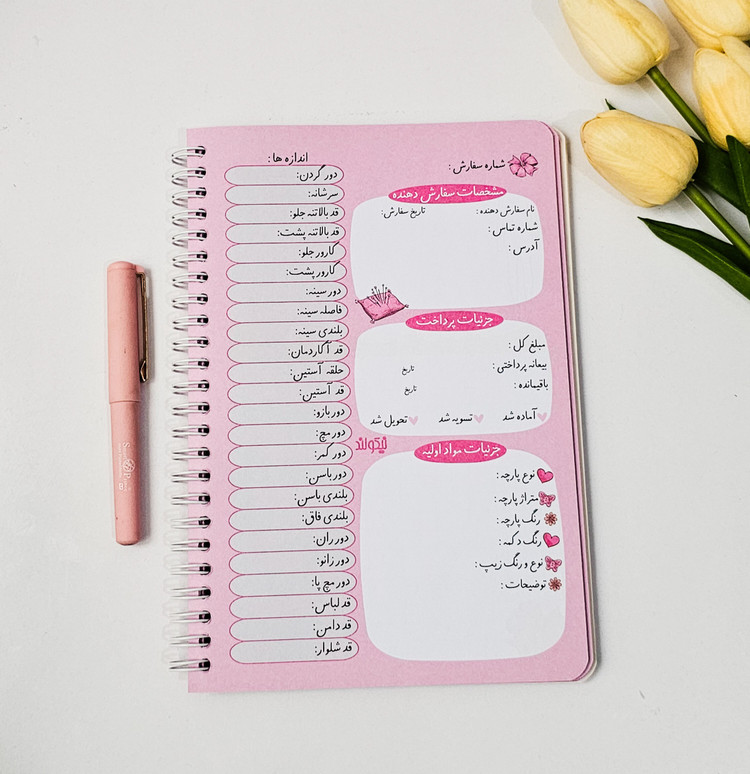 شماره سفارش:
مشخصات سفارش دهنده
نام سفارش دهنده: تاریخ سفارش:
شماره تماس:
آدرس:
جزئیات پرداخت
مبلغ کل:
بیعانه پرداختی: تاریخ
باقیمانده: تاریخ
آماده شد تسویه شد تحویل شد
نیکولند
جزئیات مواد اولیه
نوع پارچه:
متراژ پارچه:
رنگ پارچه:
رنگ دکمه:
نوع و رنگ زیپ:
توضیحات:
اندازه ها:
دور گردن:
سرشانه:
قد بالاتنه جلو:
قد بالاتنه پشت:
کارور جلو:
کارور پشت:
دور سینه:
فاصله سینه:
بلندی سینه:
قد آکاردمان:
حلقه آستین:
قد آستین:
دور بازو:
دور مچ:
دور کمر:
دور باسن:
بلندی باسن:
بلندی فاق:
دور ران:
دور زانو:
دور مچ پا:
قد لباس:
قد دامن:
قد شلوار: